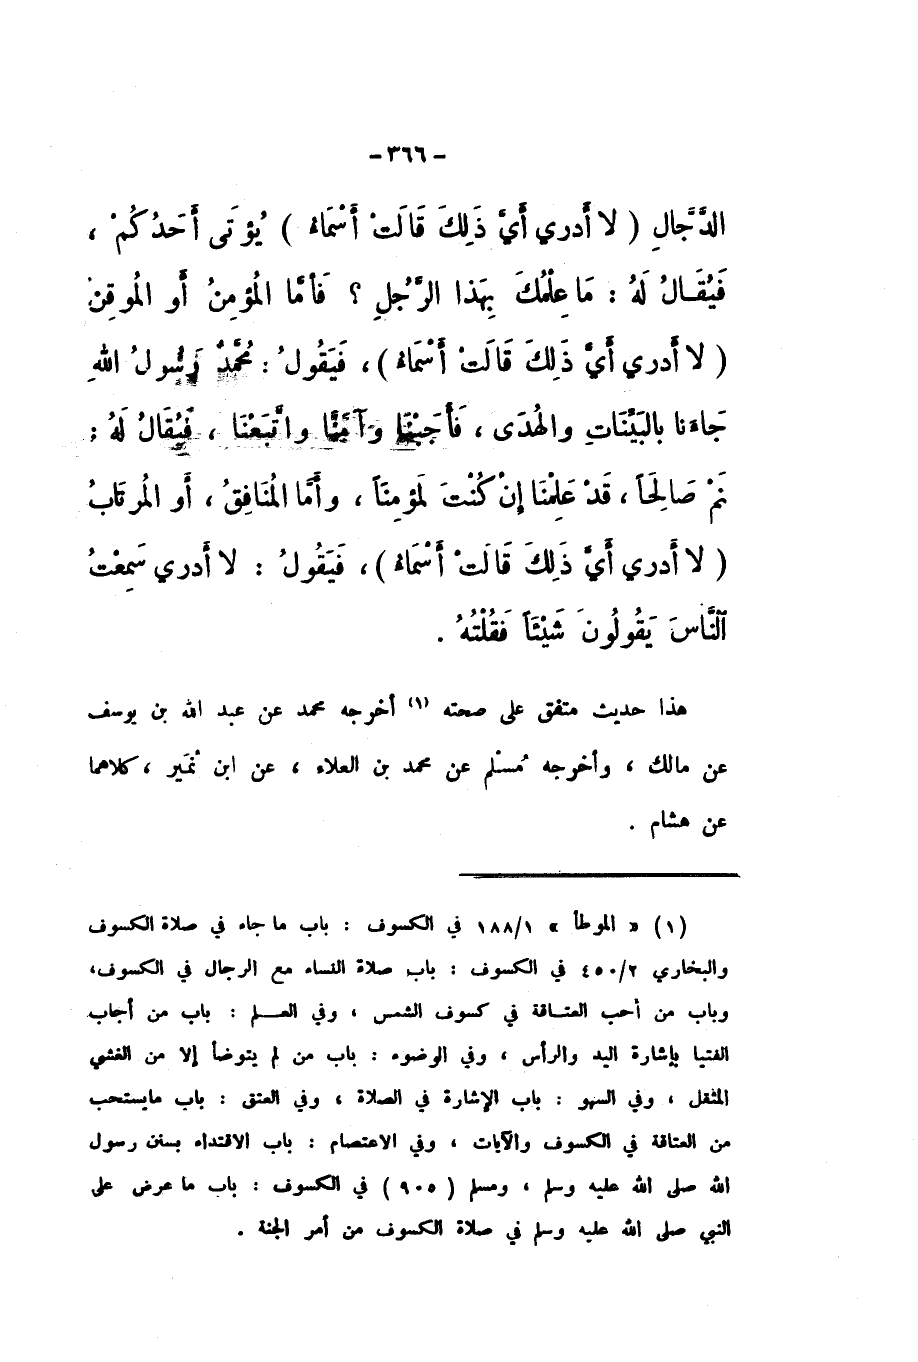 - ٣٦٦ -
الدَّجَّالِ ( لا أَدري أَيَّ ذَلِكَ قَالَتْ أَسْمَاءُ ) يُؤتَى أَحَدُكُمْ ،
فَيُقَـالُ لَهُ : مَا عِلْمُكَ بِهَذا الرَّجُلِ ؟ فَأَمَّا المُؤمِنُ أَو المُوقِنُ
( لا أَدري أَيَّ ذَلِكَ قَالَتْ أَسْمَاءُ ) ، فَيَقُولُ : مُحَمَّدٌ رَسُولُ اللهِ
جَاءَنا بالبَيِّنَاتِ والهُدَى ، فَأَجَبْنَا وَآمَنَّا واتَّبَعْنَا ، فَيُقَالُ لَهُ :
نَمْ صَالِحَاً ، قَدْ عَلِمْنَا إِنْ كُنْتَ لَمُؤمِنَاً ، وأَمَّا المُنَافِقُ ، أَو المُرتَابُ
( لا أَدري أَيَّ ذَلِكَ قَالَتْ أَسْمَاءُ ) ، فَيَقُولُ : لا أَدري سَمِعْتُ
النَّاسَ يَقُولُونَ شَيْئَاً فَقُلْتُهُ .
هذا حديث متفق على صحته (١) أخرجه محمد عن عبد الله بن يوسف
عن مالك ، وأخرجه مُسْلم عن محمد بن العلاء ، عن ابن نُمَير ، كلاهما
عن هشام .
(١) « الموطأ » ١٨٨/١ في الكسوف : باب ما جاء في صلاة الكسوف
والبخاري ٤٥٠/٢ في الكسوف : باب صلاة النساء مع الرجال في الكسوف،
وباب من أحب العتـاقة في كسوف الشمس ، وفي العـــلم : باب من أجاب
الفتيا بإشارة اليد والرأس ، وفي الوضوء : باب من لم يتوضأ إلا من الغشي
المثقل ، وفي السهو : باب الإشارة في الصلاة ، وفي العتق : باب مايستحب
من العتاقة في الكسوف والآيات ، وفي الاعتصام : باب الاقتداء بسنن رسول
الله صلى الله عليه وسلم ، ومسلم ( ٩٠٥ ) في الكسوف : باب ما عرض على
النبي صلى الله عليه وسلم في صلاة الكسوف من أمر الجنة .